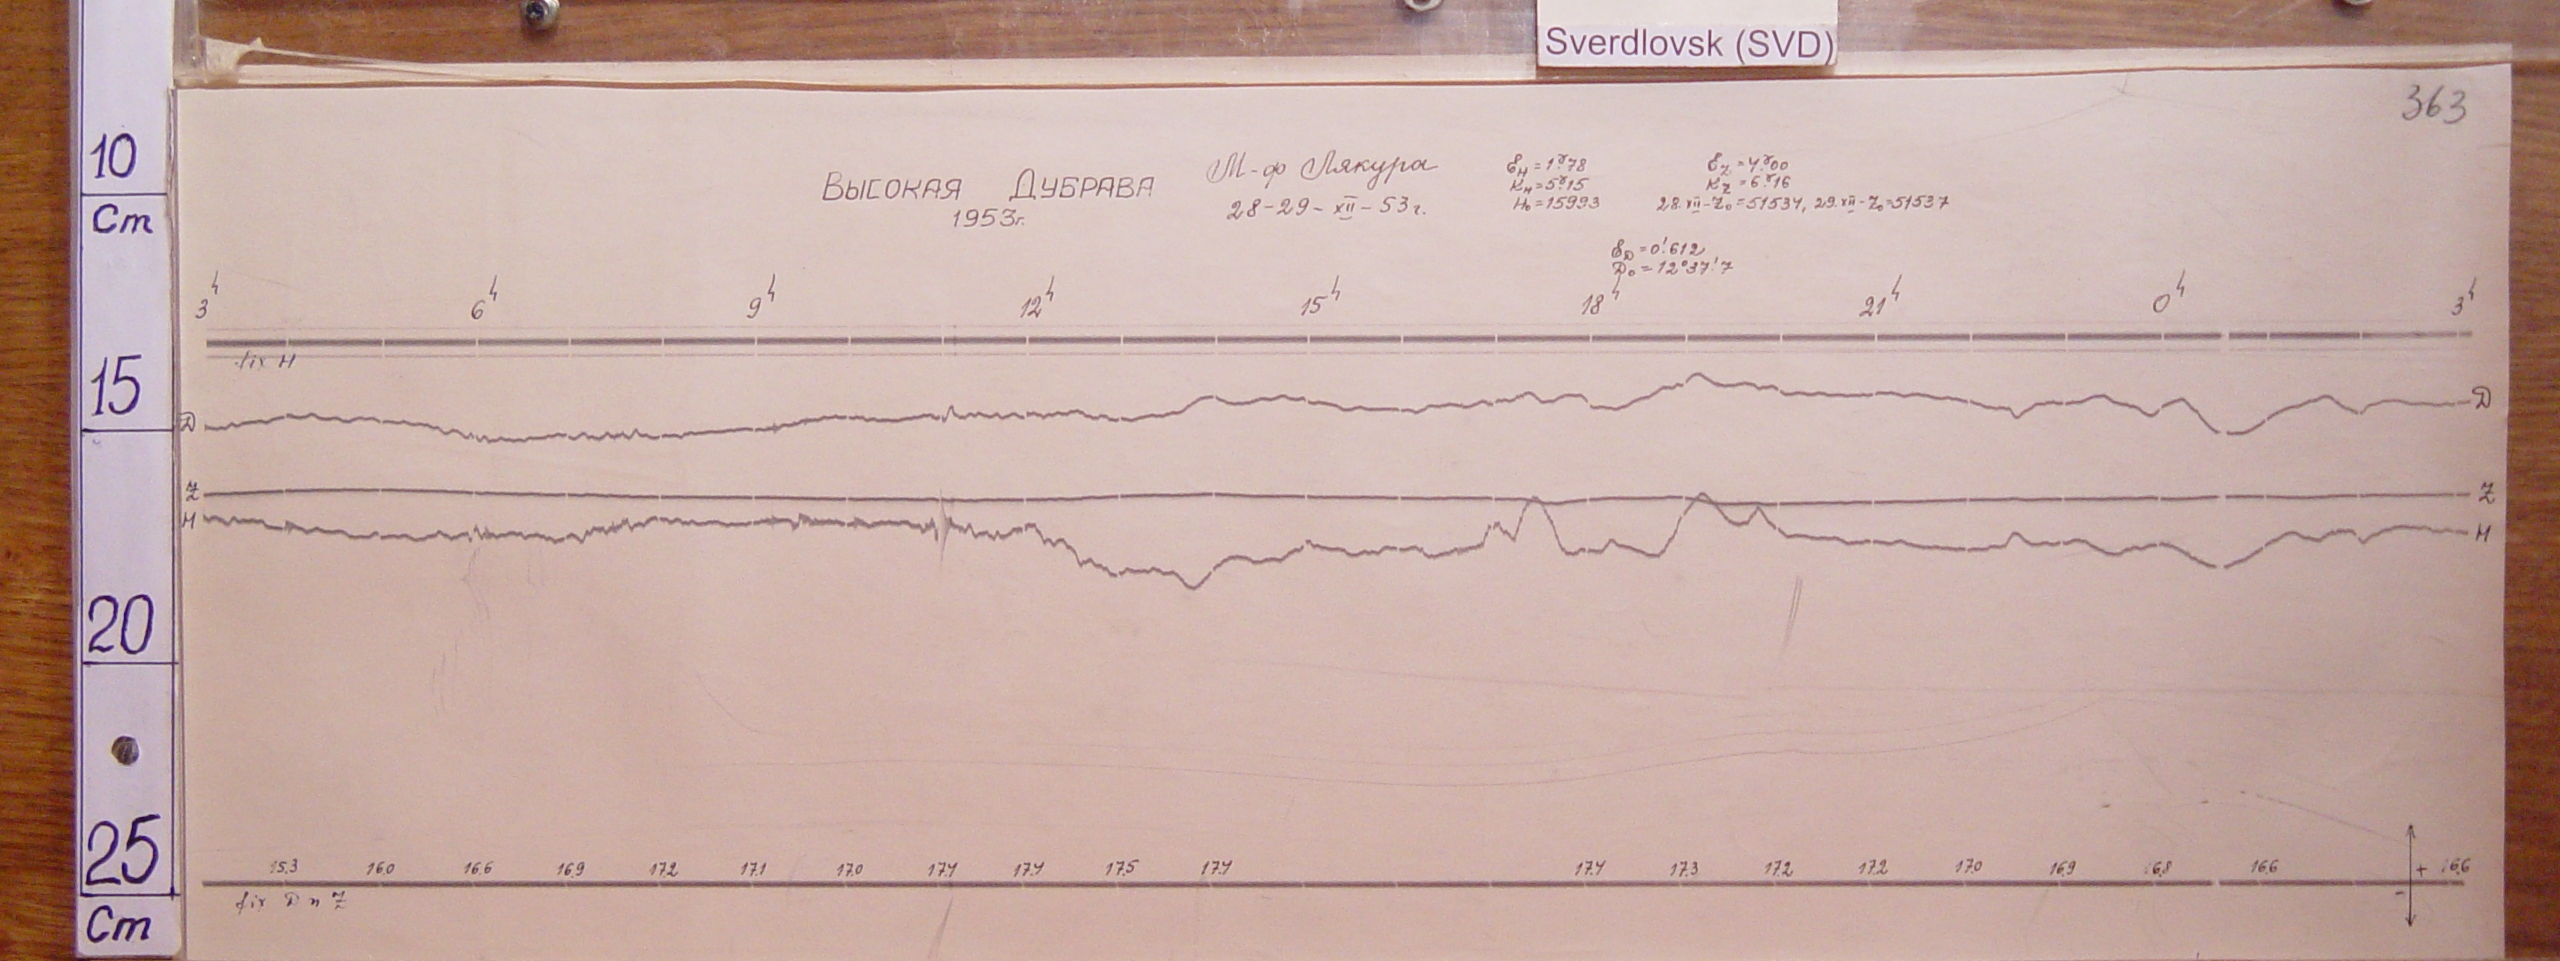 Sverdlovsk (SVD)
363
10
Cm
15
20
25
Cm
ВЫСОКАЯ ДУБРАВА
1953г.
М-ф Лякура
28-29-XII-53г.
ε_H=1.γ78
K_H=5.γ15
H₀=15993
ε_Z=4.γ00
K_Z=6.γ16
28.XII-Z₀=51534, 29.XII-Z₀=51537
ε_D=0'.612
D₀=12°37'.7
3ʰ 6ʰ 9ʰ 12ʰ 15ʰ 18ʰ 21ʰ 0ʰ 3ʰ
fix H
D D
Z Z
H H
15.3 16.0 16.6 16.9 17.2 17.1 17.0 17.4 17.4 17.5 17.4 17.4 17.3 17.2 17.2 17.0 16.9 16.8 16.6 + 16.6
-
fix D и Z